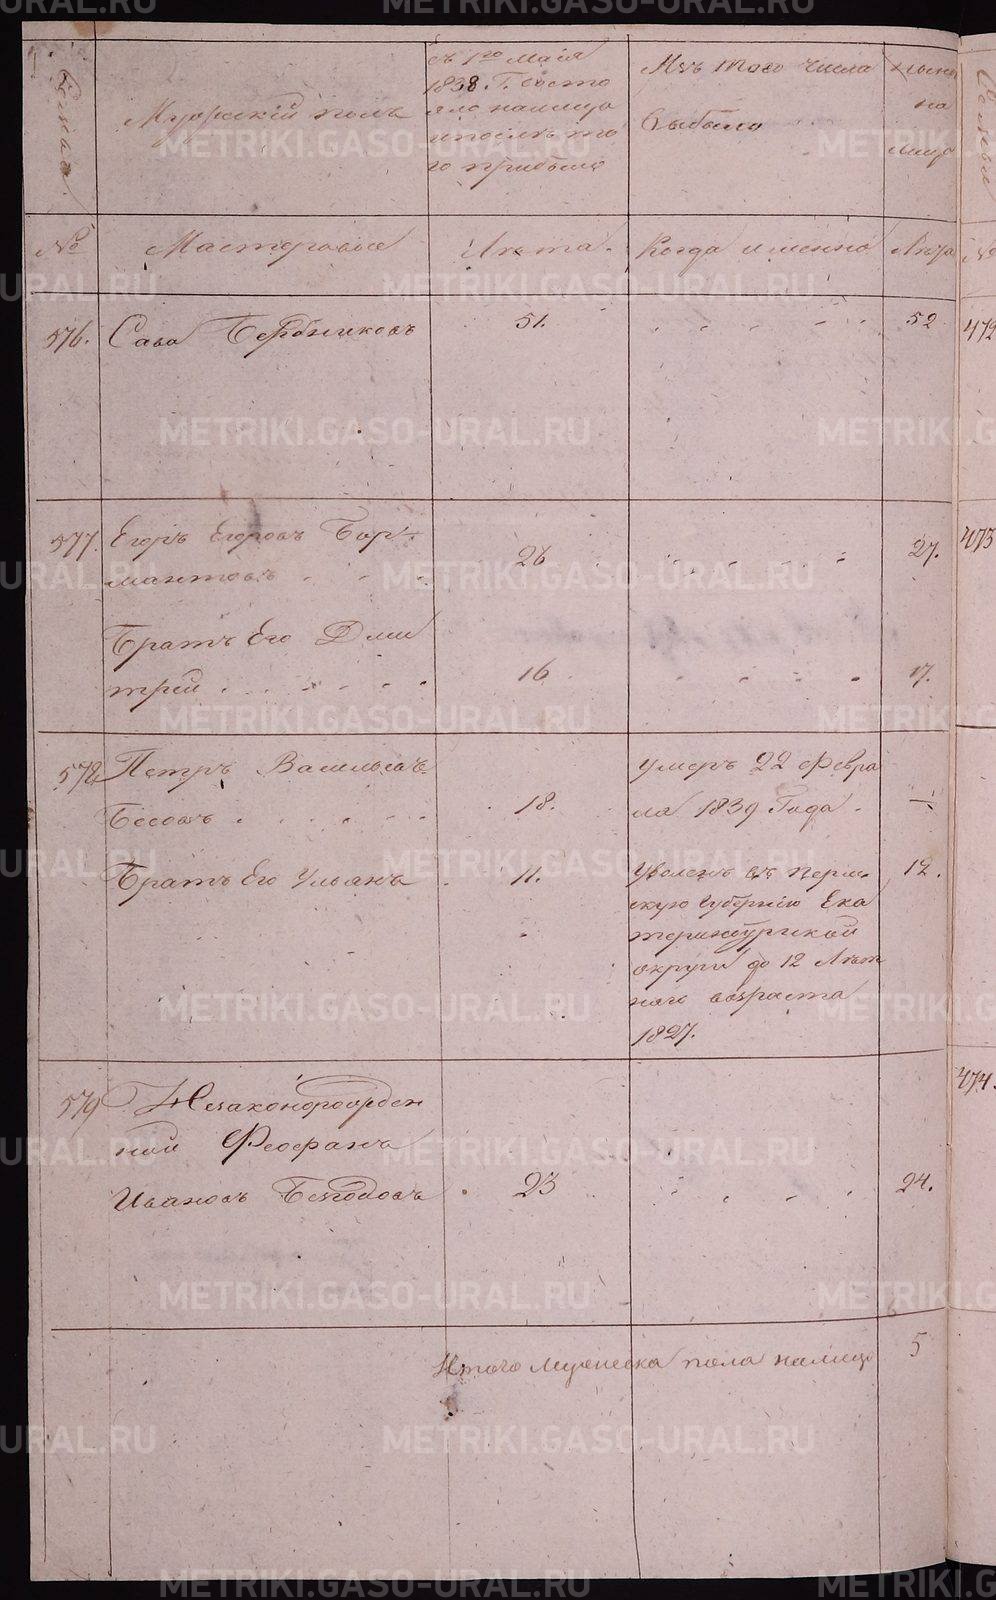 Семьи
Мужескій полъ
съ 1го Маія
1838. Г. Состо
яло налицо
и послѣ то
го прибыло
Изъ того числа
выбыло
нынѣ
на
лицо
Семьи
№
Мастеровые
Лѣта.
Когда именно
Лѣта
№
576.
Сава Бердниковъ
51.
52
472
577.
Егоръ Егоровъ Бор
мантовъ
26
27.
473
Братъ Его Дми
трей
16
17.
578
Петръ Васильевъ
Бесовъ
18.
Умеръ 22 Февра
ля 1839 Года.
Братъ Его Ульянъ
11.
Уволенъ въ перм
скую губернію Ека
теринбургской
округи до 12 Лѣт
няго возраста
1827.
12.
579
Незаконорожден
ной Феофанъ
Ивановъ Безгодовъ
23
24.
474.
Итого Мужеска пола налицо
5
METRIKI.GASO-URAL.RU